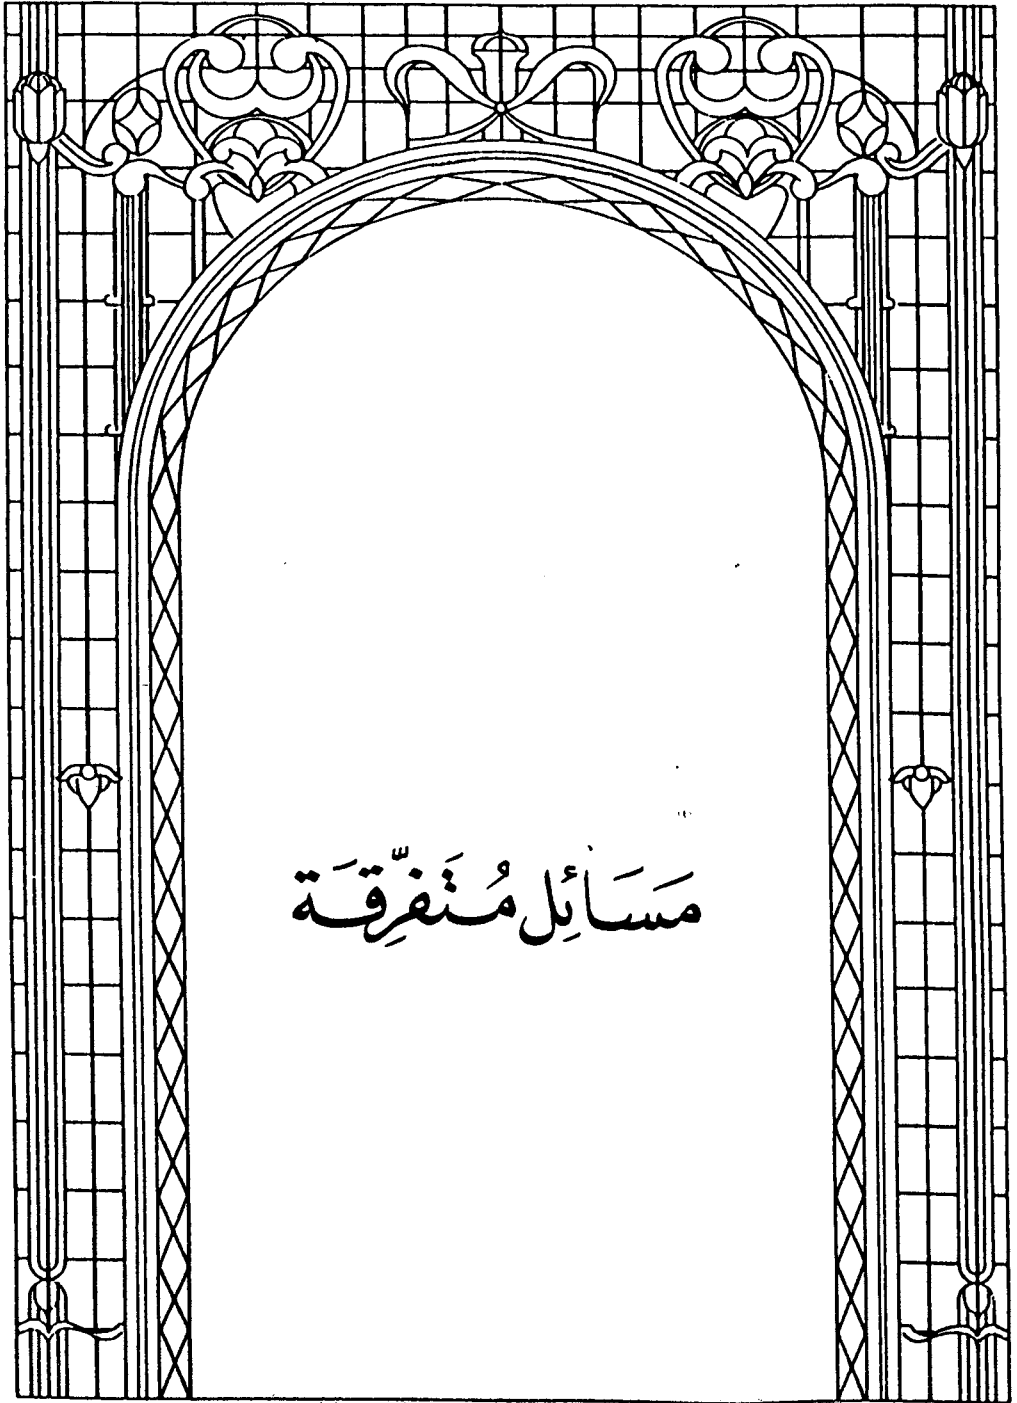 مَسَائِل مُتَفَرِّقَة